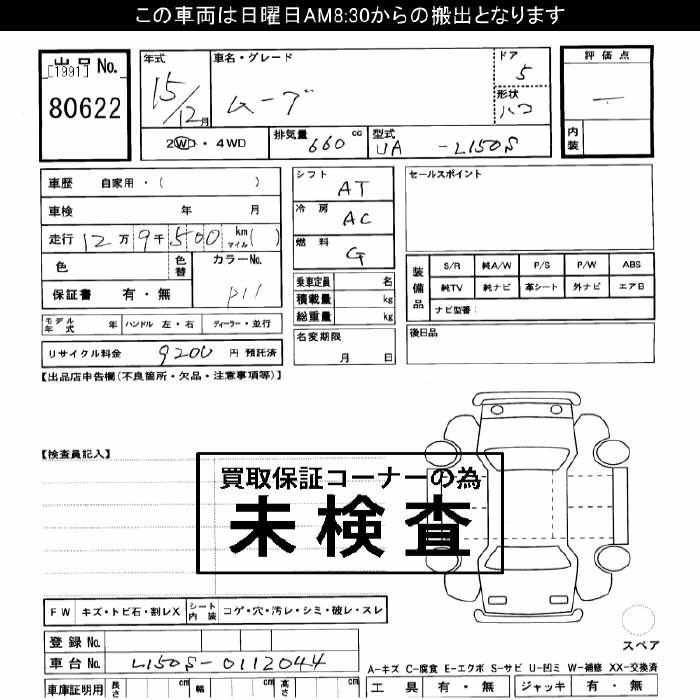 この車両は日曜日AM8:30からの搬出となります
出品 No.
[1991]
80622
年式
15/12月
車名・グレード
ムーブ
ドア
5
形状
ハコ
評価点
—
内装
2WD・4WD
排気量 660 cc
型式 UA -L150S
車歴 自家用・( )
車検 年 月
走行 12万9千500 km マイル( )
色
色替
カラーNo.
P11
保証書 有・無
モデル年式 年
ハンドル 左・右
ディーラー・並行
リサイクル料金 9200 円 預託済
シフト AT
冷房 AC
燃料 G
乗車定員 名
積載量 kg
総重量 kg
名変期限
月 日
セールスポイント
装備品
S/R 純A/W P/S P/W ABS
純TV 純ナビ 革シート 外ナビ エアB
ナビ型番:
後日品
【出品店申告欄(不良箇所・欠品・注意事項等)】
【検査員記入】
買取保証コーナーの為
未検査
FW キズ・トビ石・割レX
シート内装 コゲ・穴・汚レ・シミ・破レ・スレ
登録 No.
車台 No. L150S-0112044
車庫証明用 長さ cm 幅 cm 高さ cm
スペア
A-キズ C-腐食 E-エクボ S-サビ U-凹ミ W-補修 XX-交換済
工具 有・無 ジャッキ 有・無